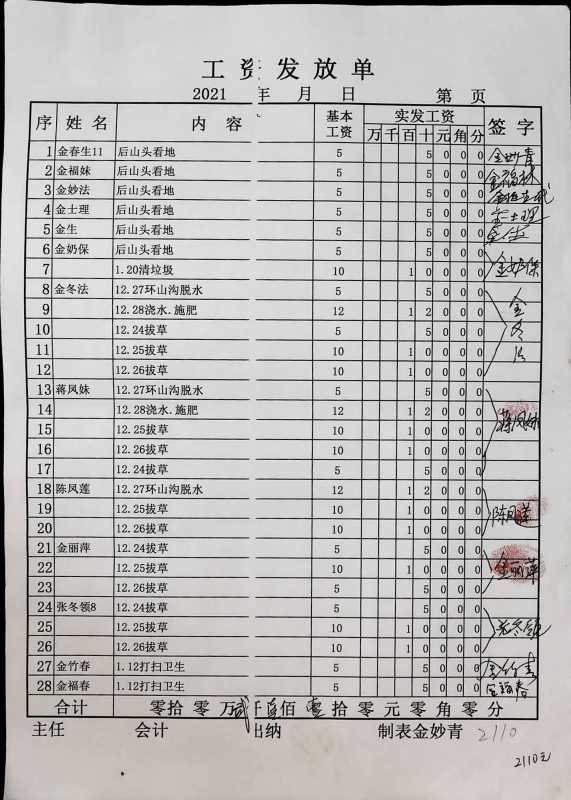 工资发放单
2021 年 月 日 第 页
序 姓名 内容 基本工资 实发工资 签字
万 千 百 十 元 角 分
1 金春生11 后山头看地 5 5 0 0 0 金妙青
2 金福妹 后山头看地 5 5 0 0 0
3 金妙法 后山头看地 5 5 0 0 0
4 金士理 后山头看地 5 5 0 0 0 金士理
5 金生 后山头看地 5 5 0 0 0
6 金奶保 后山头看地 5 5 0 0 0 金奶保
7 1.20清垃圾 10 1 0 0 0 0
8 金冬法 12.27环山沟脱水 5 5 0 0 0 金冬法
9 12.28浇水.施肥 12 1 2 0 0 0
10 12.24拔草 5 5 0 0 0
11 12.25拔草 10 1 0 0 0 0
12 12.26拔草 10 1 0 0 0 0
13 蒋凤妹 12.27环山沟脱水 5 5 0 0 0 蒋凤妹
14 12.28浇水.施肥 12 1 2 0 0 0
15 12.25拔草 10 1 0 0 0 0
16 12.26拔草 10 1 0 0 0 0
17 12.24拔草 5 5 0 0 0
18 陈凤莲 12.27环山沟脱水 12 1 2 0 0 0 陈凤莲
19 12.25拔草 10 1 0 0 0 0
20 12.26拔草 10 1 0 0 0 0
21 金丽萍 12.24拔草 5 5 0 0 0 金丽萍
22 12.25拔草 10 1 0 0 0 0
23 12.26拔草 5 5 0 0 0
24 张冬领8 12.24拔草 5 5 0 0 0 张冬领
25 12.25拔草 10 1 0 0 0 0
26 12.26拔草 10 1 0 0 0 0
27 金竹春 1.12打扫卫生 5 5 0 0 0 金竹春
28 金福春 1.12打扫卫生 5 5 0 0 0 金福春
合计 零拾零万贰千壹佰壹拾零元零角零分
主任 会计 出纳 制表金妙青 2110
2110元